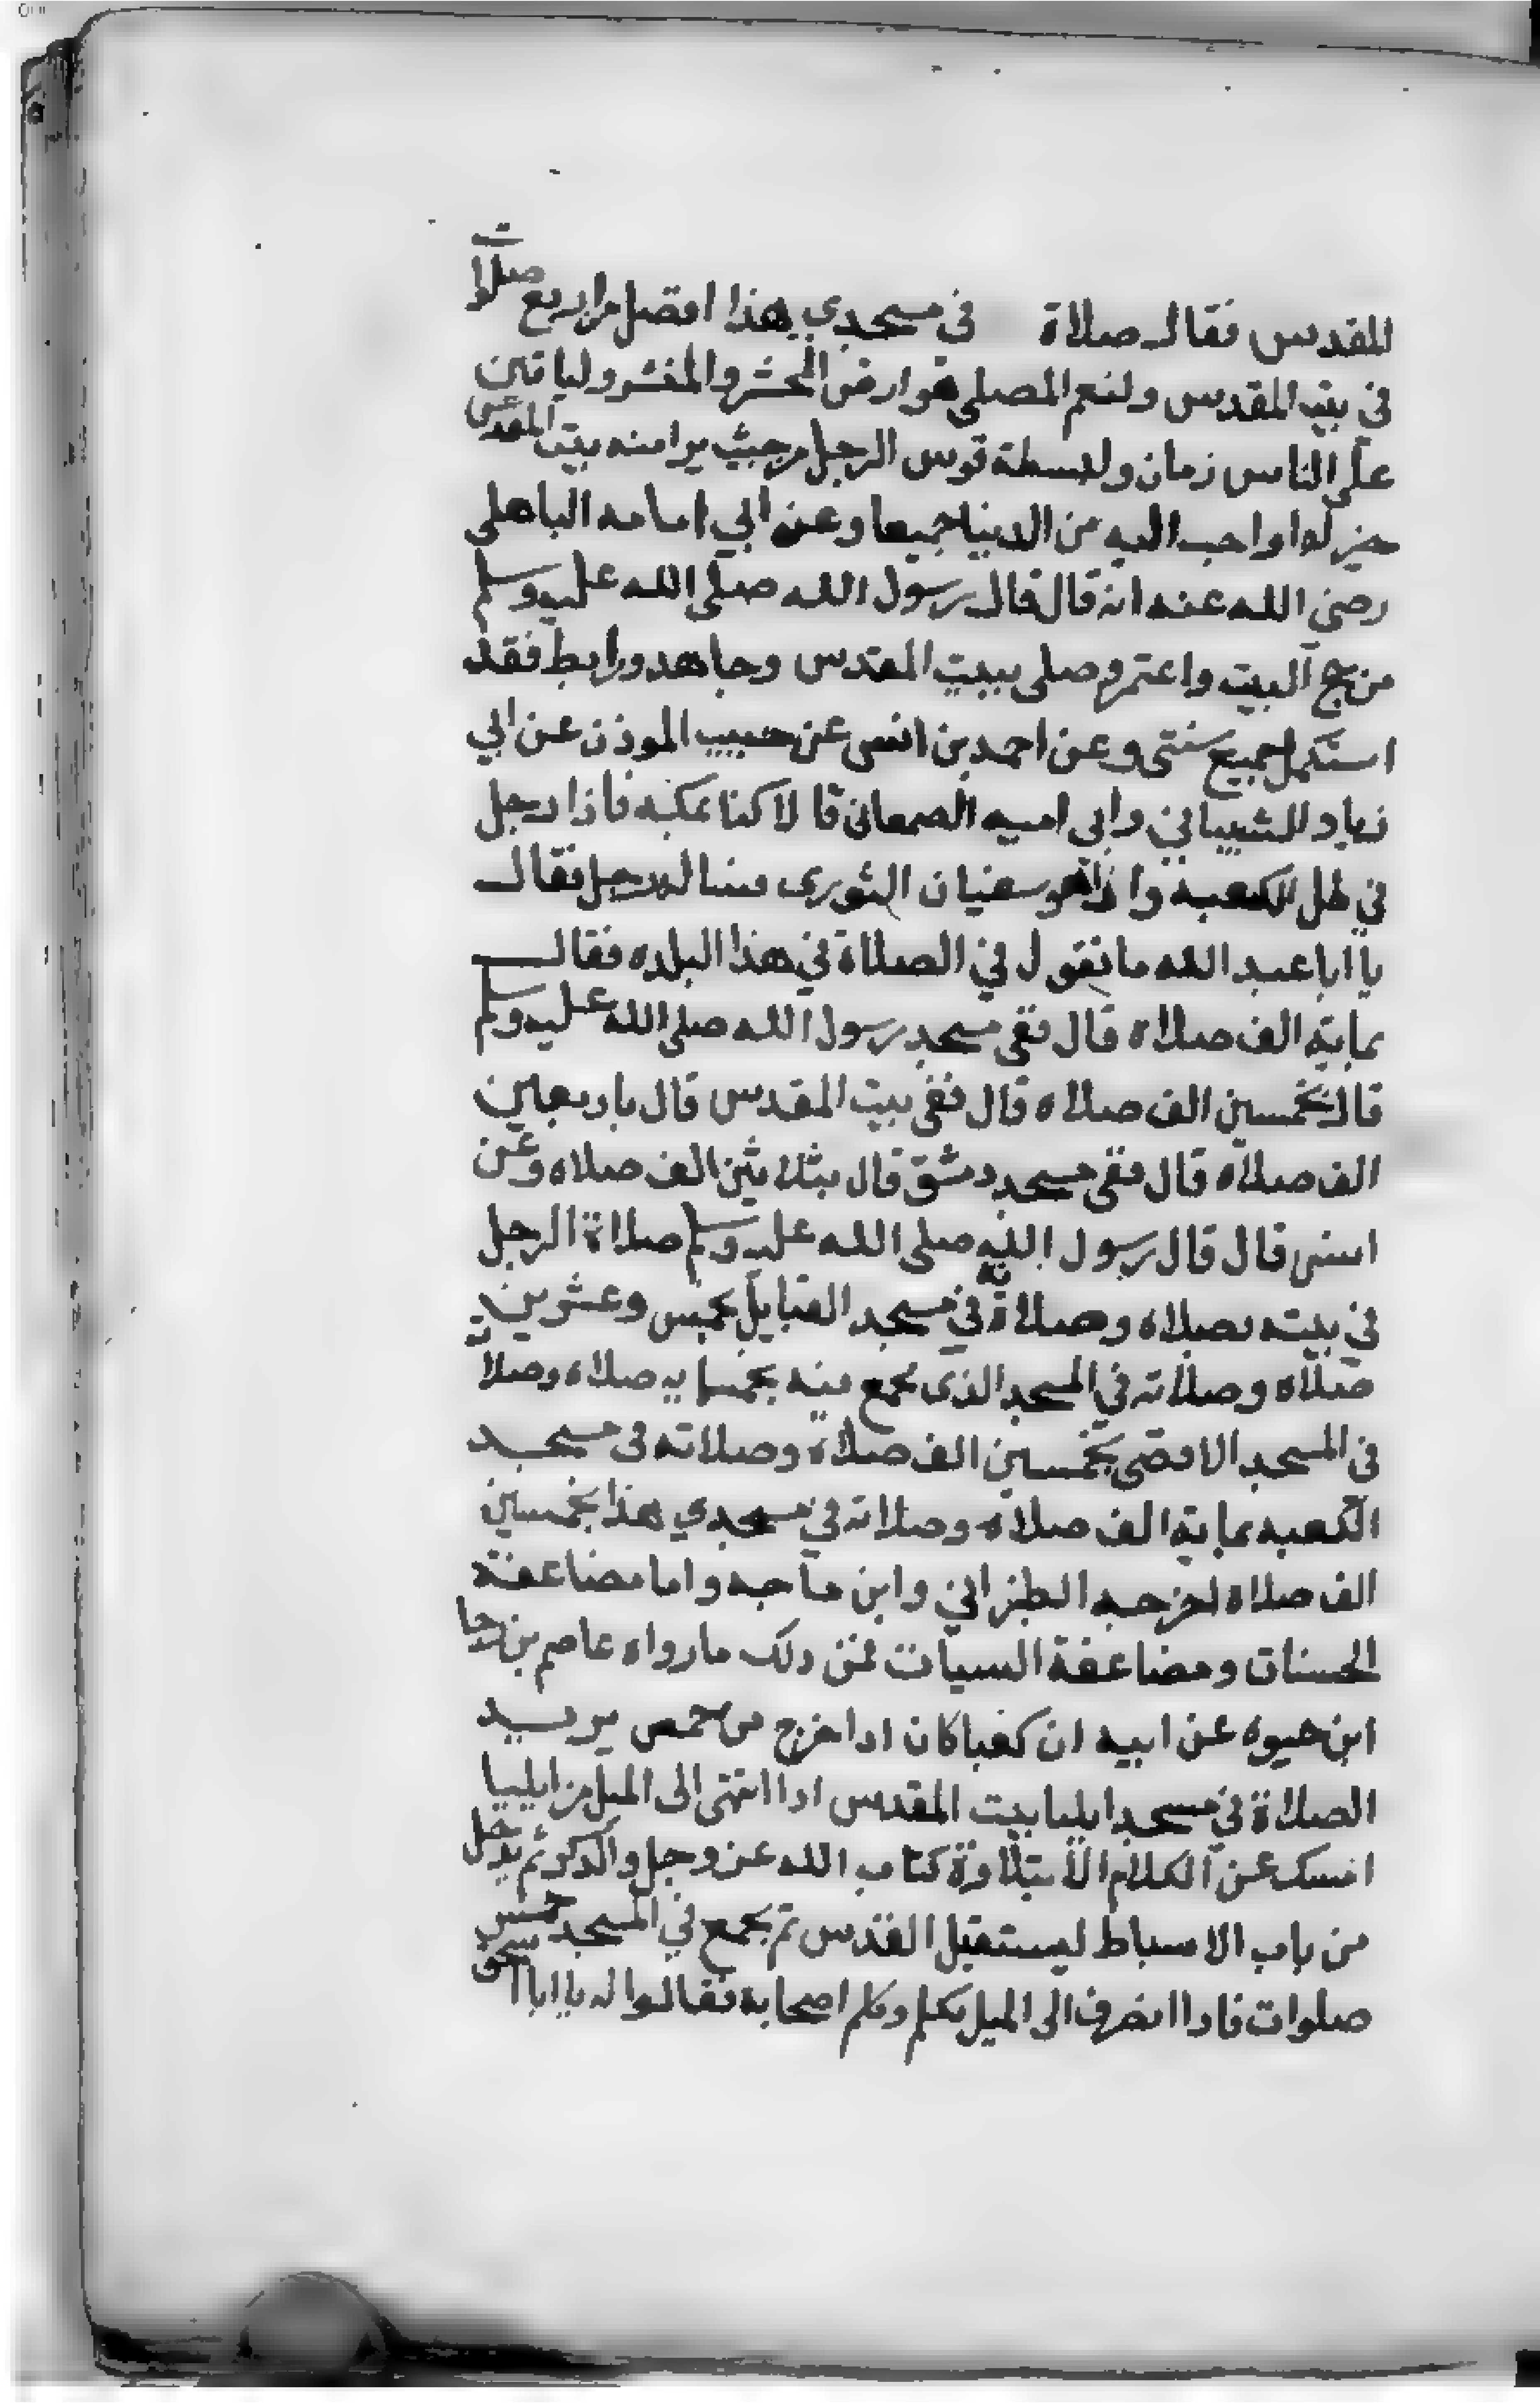 المقدس فقال صلاة في مسجدي هذا افضل من اربع صلوات
في بيت المقدس ولنعم المصلى هو ارض المحشر والمنشر ولياتين
على الناس زمان ولبسطة قوس الرجل من حيث يرا منه بيت المقدس
خير له او احب اليه من الدنيا جميعا وعن ابي امامه الباهلي
رضي الله عنه انه قال قال رسول الله صلى الله عليه وسلم
من حج البيت واعتمر وصلى ببيت المقدس وجاهد ورابط فقد
استكمل جميع سنتي وعن احمد بن انس عن حبيب الموذن عن ابي
زياد الشيباني وابي اميه الصمعاني قالا كنا بمكه فاذا رجل
في ظل الكعبه واذا هو سفيان الثوري فساله رجل فقال
يا ابا عبد الله ما تقول في الصلاة في هذا البلده فقال
بماية الف صلاه قال ففي مسجد رسول الله صلى الله عليه وسلم
قال بخمسين الف صلاه قال ففي بيت المقدس قال باربعين
الف صلاه قال ففي مسجد دمشق قال بثلاثين الف صلاه وعن
انس قال قال رسول الله صلى الله عليه وسلم صلاة الرجل
في بيته بصلاه وصلاته في مسجد القبايل بخمس وعشرين
صلاه وصلاته في المسجد الذي يجمع فيه بخمسمايه صلاه وصلاته
في المسجد الاقصى بخمسين الف صلاة وصلاته في مسجد
الكعبه بماية الف صلاة وصلاته في مسجدي هذا بخمسين
الف صلاه اخرجه الطبراني وابن ماجه واما مضاعفة
الحسنات ومضاعفة السيات فمن دلك مارواه عاصم بن رجا
ابن حيوه عن ابيه ان كعبا كان ادا خرج من حمص يريد
الصلاة في مسجد ايليا بيت المقدس ادا انتهى الى الميل من ايليا
امسك عن الكلام الا بتلاوة كتاب الله عز وجل والدكر ثم يدخل
من باب الاسباط ليستقبل القدس ثم يجمع في المسجد خمس
صلوات فادا انصرف الى الميل تكلم وكلم اصحابه فقالوا له يا ابا اسحق